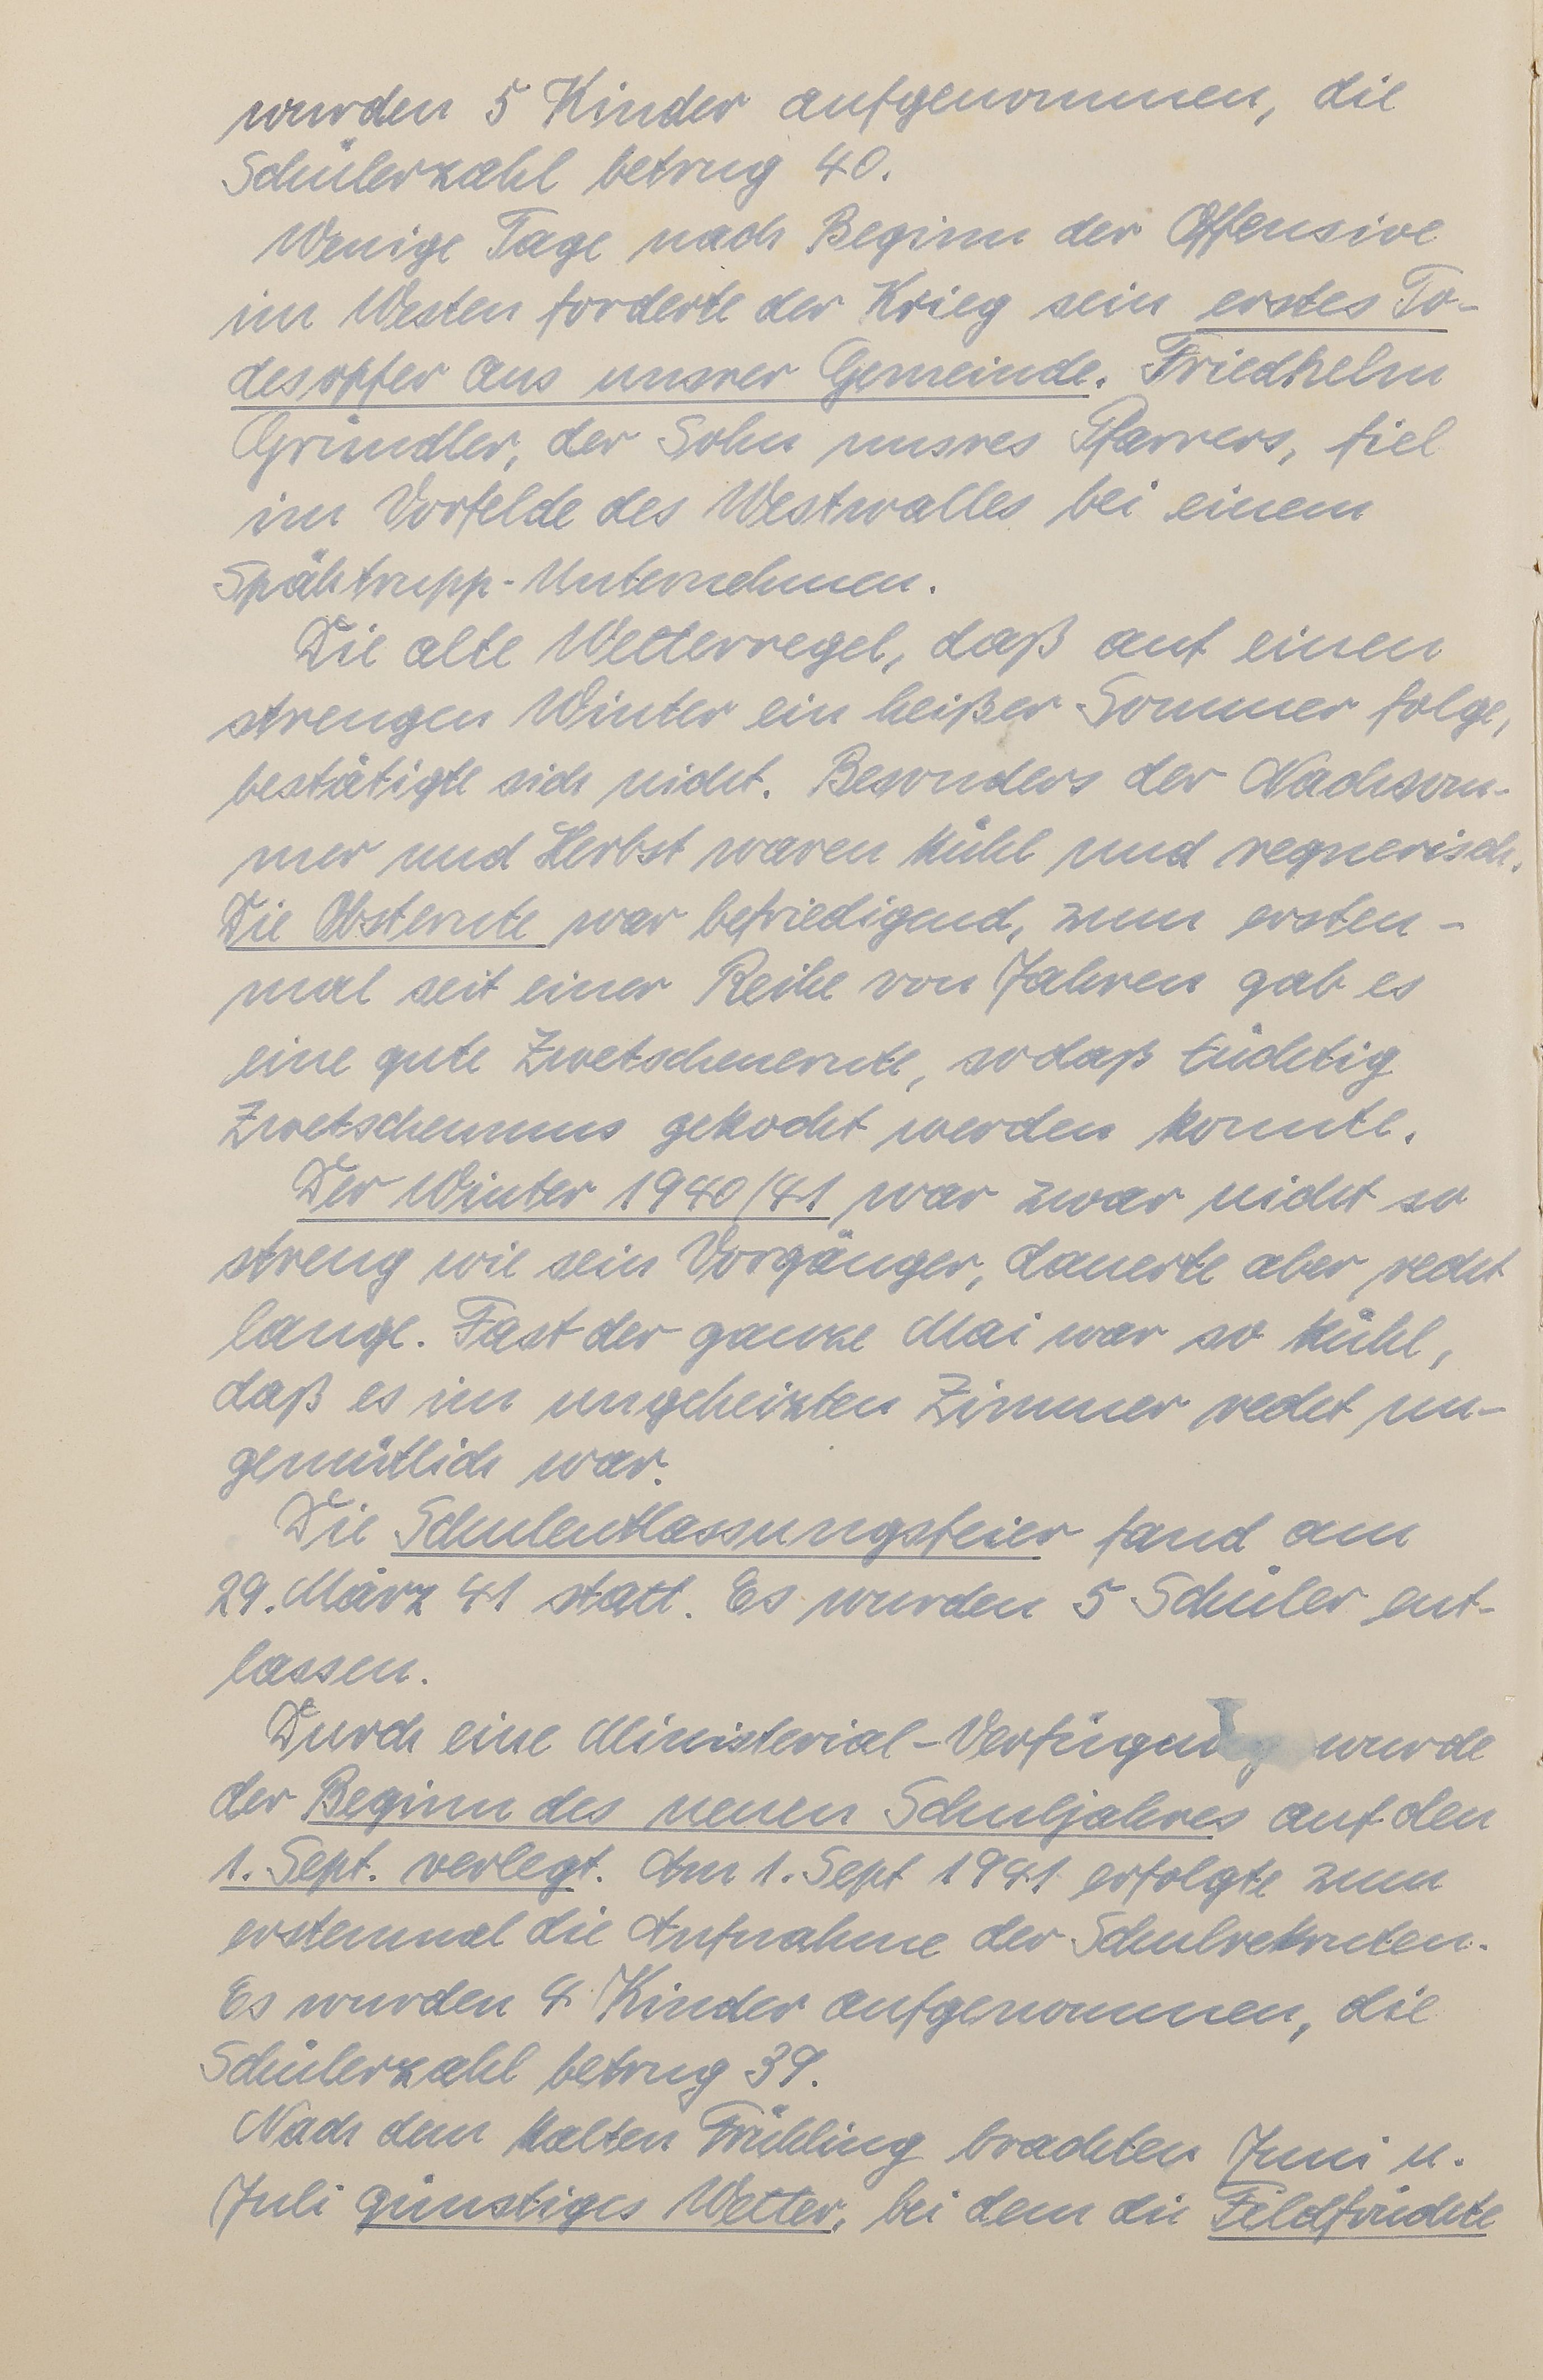 wurden 5 Kinder aufgenommen, die
Schülerzahl betrug 40.
Wenige Tage nach Beginn der Offensive
im Westen forderte der Krieg sein erstes To-
desopfer aus unsrer Gemeinde. Friedhelm
Gründler, der Sohn unsres Pfarrers, fiel
im Vorfelde des Westwalles bei einem
Spähtrupp-Unternehmen.
Die alte Wetterregel, daß auf einen
strengen Winter ein heißer Sommer folge,
bestätigte sich nicht. Besonders der Nachsom-
mer und Herbst waren kühl und regnerisch.
Die Obsternte war befriedigend, zum ersten-
mal seit einer Reihe von Jahren gab es
eine gute Zwetschenernte, sodaß tüchtig
Zwetschenmus gekocht werden konnte.
Der Winter 1940/41 war zwar nicht so
streng wie sein Vorgänger, dauerte aber recht
lange. Fast der ganze Mai war so kühl,
daß es im ungeheizten Zimmer recht un-
gemütlich war.
Die Schulentlassungsfeier fand am
29. März 41 statt. Es wurden 5 Schüler ent-
lassen.
Durch eine Ministerial-Verfügung wurde
der Beginn des neuen Schuljahres auf den
1. Sept. verlegt. Am 1. Sept 1941 erfolgte zum
erstenmal die Aufnahme der Schulrekruten.
Es wurden 4 Kinder aufgenommen, die
Schülerzahl betrug 39.
Nach dem kalten Frühling brachten Juni u.
Juli günstiges Wetter, bei dem die Feldfrüchte